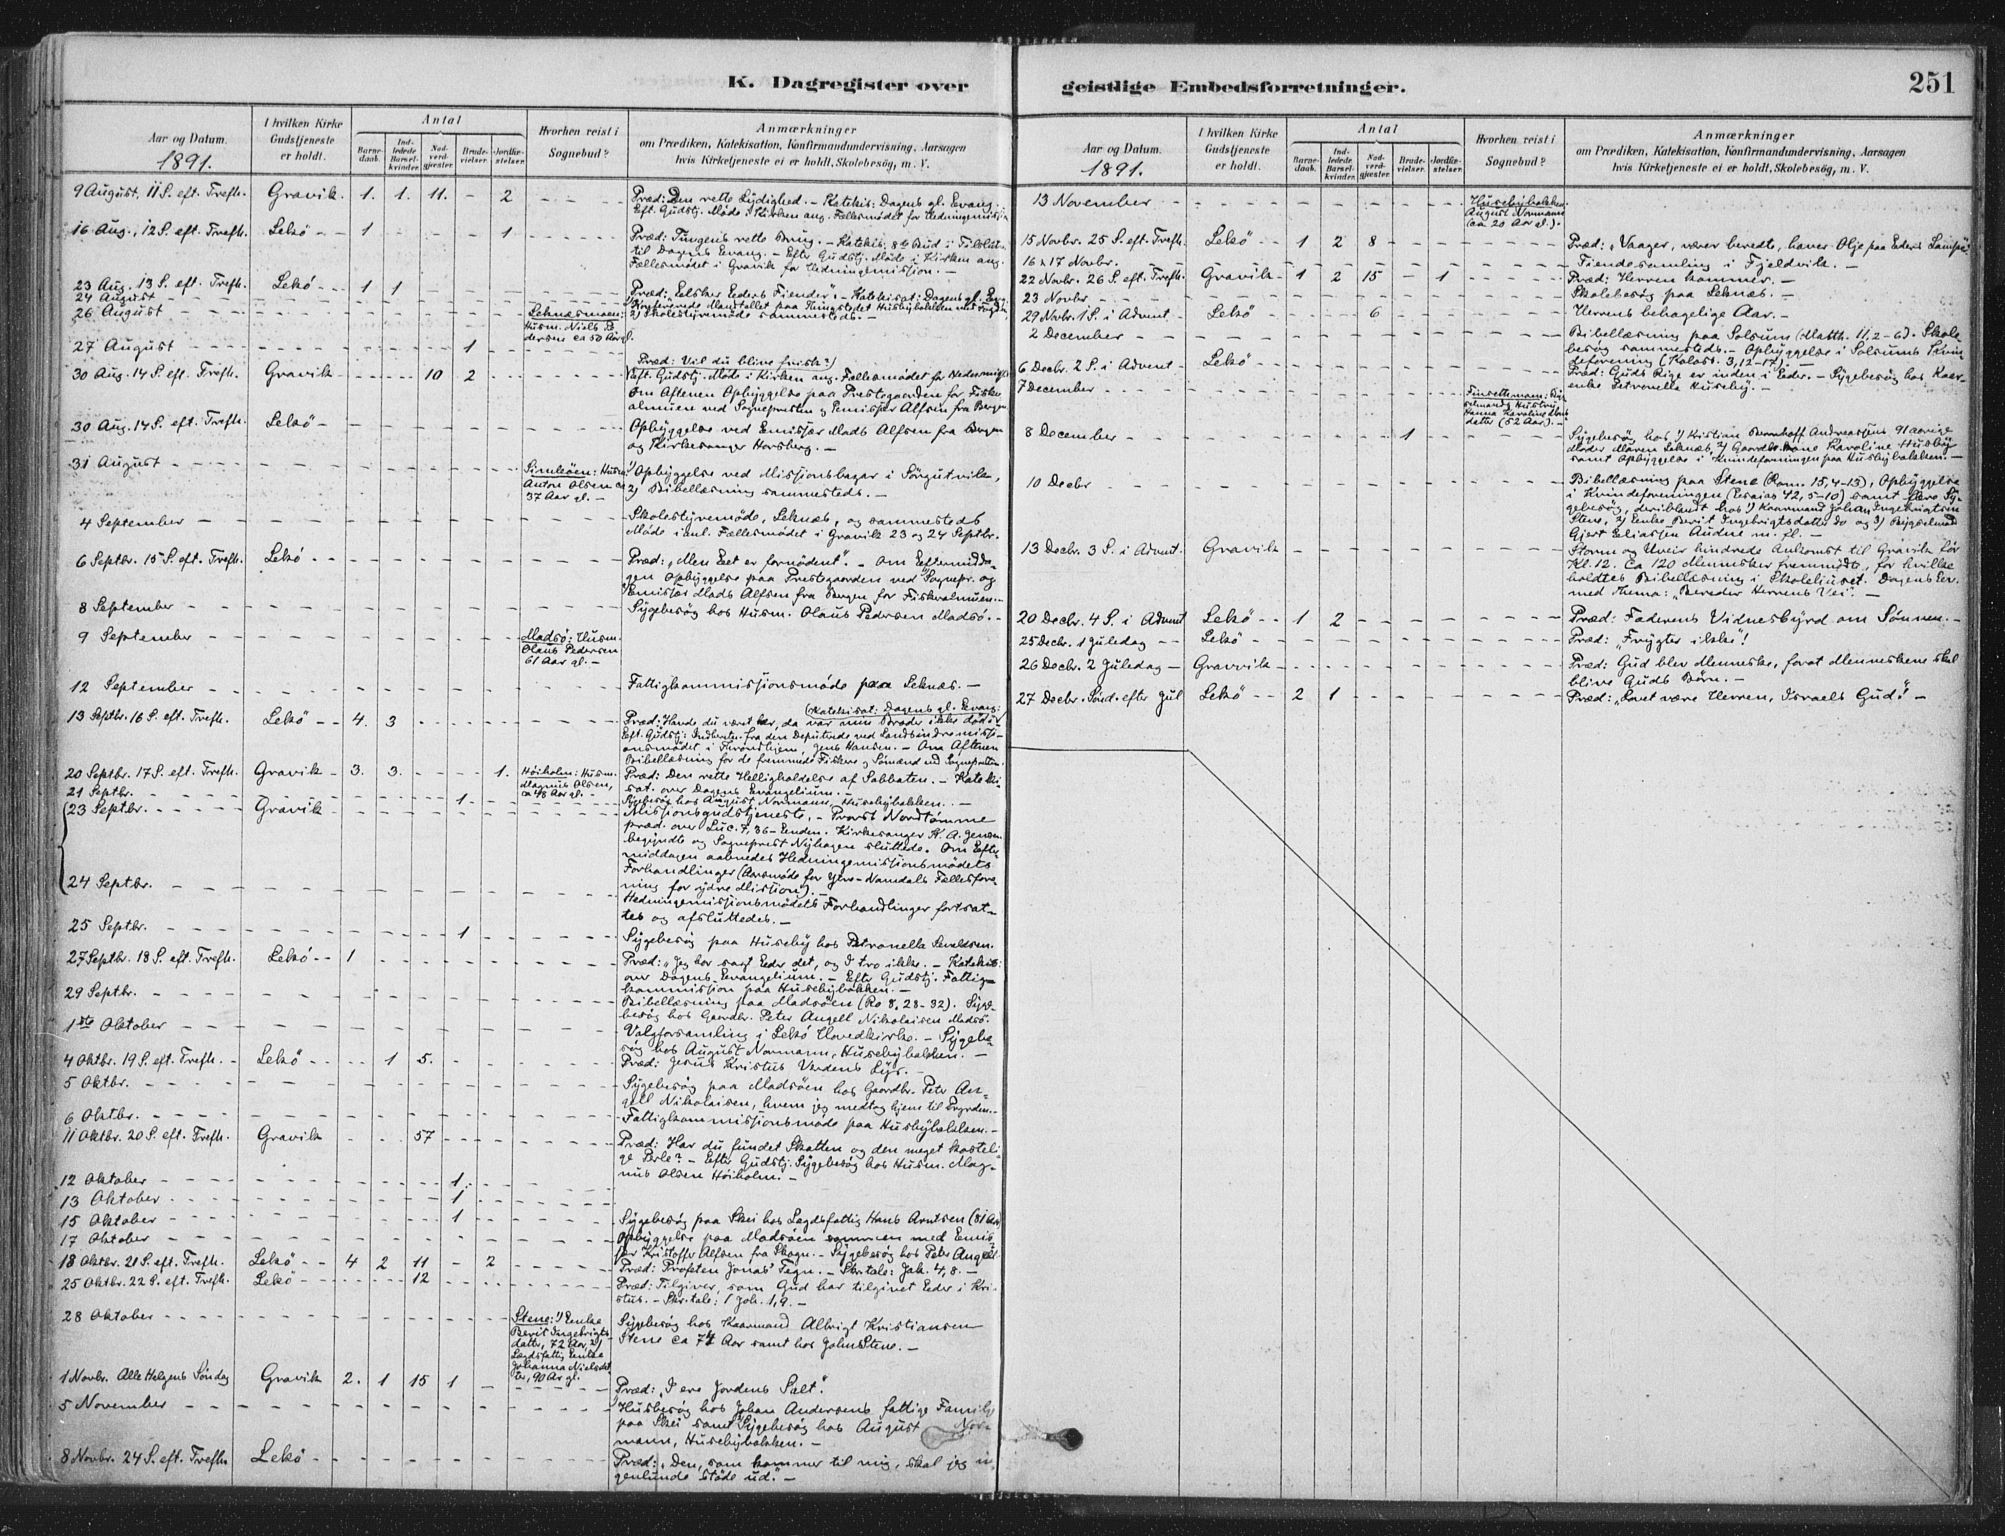 K. Dagregister over geistlige Embedsforretninger.
251
Aar og Datum. 1891.
I hvilken Kirke Gudstjeneste er holdt.
Antal
Barnedaab.
Indledede Barselkvinder.
Nadverdgjester.
Brudevielser.
Jordfæstelser.
Hvorhen reist i Sognebud?
Anmærkninger
om Prædiken, Katekisation, Konfirmandundervisning, Aarsagen
hvis Kirketjeneste ei er holdt, Skolebesøg, m. V.
9 August, 11 S. eft. Trefh. Gravik 1. 1. 11. - 2 Præd: Den rette Lydighed. - Katekis: Dagens gl. Evang.
Eft. Gudstj. Møde i Kirken ang. Fællesmødet for Hedningemission
16 Aug., 12 S. eft. Trefh. Lekö 1 1 Præd: Tungens rette Brug. - Katekis. 8de Bud i
til Dagens Evang. - Efter Gudstj. Møde i Kirken ang.
Fællesmødet i Gravik for Hedningemission. -
23 Aug. 13 S. eft. Trefh. Lekö 1 1 Præd: "Elsker Eders Fiender". - Katekisat: Dagens gl. Evg.
24 August
26 August Leknæsmoen: 2) Skolestyremøde sammesteds. -
Husm. Niels Pedersen ca 50 Aar gl.
27 August 1
Præd: Vil du blive frisk?
30 Aug. 14 S. eft. Trefh. Gravik 10 2 Eft. Gudstj. Møde i Kirken ang. Fællesmødet for Hedermiss.
Om Aftenen Opbyggelse paa Prestegaarden for Fiskealmuen
ved Sognepresten og Emissær Alfsen fra Bergen
30 Aug. 14 S. eft. Trefh. Lekö Opbyggelse ved Emissær Mads Alfsen fra Bergen
og Kirkesanger Horsberg. -
31 August Husm. Anton Olsen ca 37 Aar gl. - 1) Opbyggelse ved Missionsbazar i Sörgutvik,
2) Bibellæsning sammesteds. -
4 September Skolestyremøde, Leknæs, og sammesteds
Møde i anl. Fællesmødet i Gravik 23 og 24 Septbr.
6 Septbr. 15 S. eft. Trefh. Lekö Præd: "Men Eet er fornødent". - Om Eftermiddagen
Opbyggelse paa Prestegaarden ved Sognepr. og
Emissær Mads Alfsen fra Bergen for Fiskealmuen. -
8 September Sygebesøg hos Husm. Olaus Pedersen Madsö. -
9 September Madsö: Husm. Olaus Pedersen 61 Aar gl. -
12 September Fattigkommissionsmøde paa Leknæs. -
(Katekisat: Dagens gl. Evang.)
13 Septbr. 16 S. eft. Trefh. Lekö 4. 3 Præd: Havde du været her, da var min Broder ikke død.
Eft. Gudstj: Indberetn. fra den Deputerede ved Landsindremissionsmødet
i Throndhjem, Jens Hansen. - Om Aftenen
Bibellæsning for de fremmede Fiskere og Sømænd ved Sognepresten.
20 Septbr. 17 S. eft. Trefh. Gravik 3. 3. 1. Höiholm: Husm. Magnus Olsen, ca 48 Aar gl. - Præd: Den rette Helligholdelse af Sabbaten. - Katekisat.
over Dagens Evangelium. -
21 Septbr. 1 Sygebesøg hos August Normann, Husebybakken. -
23 Septbr. Gravik Missionsgudstjeneste. - Provst Nordtömme
præd. over Luc. 7, 36 - Enden. Kirkesanger K. A. Jensen
begyndte og Sogneprest Nyhagen sluttede. Om Eftermiddagen
aabnedes Hedningemissionsmødets
Forhandlinger (Aarsmøde for Ytre-Namdals Fællesforening
for ydre Mission). -
24 Septbr. Hedningemissionsmødets Forhandlinger fortsattes
og afsluttedes. -
25 Septbr. 1 Sygebesøg paa Huseby hos Petronella
27 Septbr. 18 S. eft. Trefh. Lekö 1 Præd: "Jeg har sagt Eder det, og I tro ikke. - Katekis:
over Dagens Evangelium. - Efter Gudstj. Fattigkommission
paa Husebybakken. -
29 Septbr. Bibellæsning paa Madsöen (Ro 8, 28-32). Sygebesøg
hos Gaardbr. Peter Angell Nikolaisen Madsö.
1ste Oktober Valgforsamling i Lekö Hovedkirke. - Sygebesøg
hos August Normann, Husebybakken. -
4 Oktbr. 19 S. eft. Trefh. Lekö 1 5. Præd: Jesus Kristus Verdens Lys. -
5 Oktbr. Sygebesøg paa Madsöen hos Gaardbr. Peter Angell
Nikolaisen, hvem jeg medtog hjem til
6 Oktbr. Fattigkommissionsmøde paa Husebybakken. -
11 Oktbr. 20 S. eft. Trefh. Gravik 57 Præd: Har du fundet Skatten og den meget kostelige
Perle? - Efter Gudstj. Sygebesøg hos Husm. Magnus
Olsen Höiholm. -
12 Oktober 1
13 Oktober 1
15 Oktober 1 Sygebesøg paa Skei hos Lægdsfattig Hans Arntsen (81 Aar)
17 Oktober Opbyggelse paa Madsöen sammen med Emissær
Kristoffer Alfsen fra Skogn. - Sygebesøg hos Peter Angell
18 Oktbr. 21 S. eft. Trefh. Lekö 4 2 11 - 2 Præd: Profeten Jonas' Tegn. - Skr.tale: Jak. 4, 8. -
25 Oktbr. 22 S. eft. Trefh. Lekö 12 Præd: Tilgiver, som Gud har tilgivet Eder i Kristus.
- Skr.tale: 1 Joh. 1, 9. -
28 Oktober Stene: 1) Enke Berit Ingebrigtsdatter, 72 Aar, 2) Lægdsfattig Enke Johanna Nielsdatter, 90 Aar gl. Sygebesøg hos Kaarmand Albrigt Kristiansen
Stene ca 74 Aar samt hos John Stene. -
1 Novbr. Alle Helgens Søndag Gravik 2. 1 15 1 - Præd: "I ere Jordens Salt".
5 November Husbesøg hos Johan Andersens fattige Familie
paa Skei samt Sygebesøg hos August Normann,
Husebybakken. -
8 Novbr. 24 S. eft. Trefh. Lekö Præd: "Den, som kommer til mig, skal jeg ingenlunde
støde ud." -
Aar og Datum. 1891.
I hvilken Kirke Gudstjeneste er holdt.
Antal
Barnedaab.
Indledede Barselkvinder.
Nadverdgjester.
Brudevielser.
Jordfæstelser.
Hvorhen reist i Sognebud?
Anmærkninger
om Prædiken, Katekisation, Konfirmandundervisning, Aarsagen
hvis Kirketjeneste ei er holdt, Skolebesøg, m. V.
13 November Husebybakken: August Normann (ca 20 Aar gl.). -
15 Novbr. 25 S. eft. Trefh. Lekö 1 2 8 Præd: "Vaager, værer beredte, haver Olje paa Eders Lamper
16 & 17 Novbr. Fiendesamling i Fjeldvik. -
22 Novbr. 26 S. eft. Trefh. Gravik 1 2 15 - 1 Præd: Herren kommer. -
23 Novbr Skolebesøg paa Leknæs. -
29 Novbr. 1 S. i Advent Lekö 6 Herrens behagelige Aar. -
2 December Bibellæsning paa Solsum (Matth. 11, 2-6). Skolebesøg
sammesteds. - Opbyggelse i Solsums Kvindeforening
(Kolos. 3, 12-17). -
6 Decbr. 2 S. i Advent Lekö Præd: Guds Rige er inden i Eder. - Sygebesøg hos Kaarenke
Petronelle Huseby. -
7 December Hustru Hanna Karoline datter (52 Aar). -
8 December 1 Sygebesøg hos 1) Kristian Bernhoff Andreassens 91 aarige
Moder Maren Leknæs, 2) Gaardbr.kone Karoline Huseby
samt Opbyggelse i Kvindeforeningen paa Husebybakken. -
10 Decbr Bibellæsning paa Stene (Rom. 15, 4-13), Opbyggelse
i Kvindeforeningen (Esaias 42, 5-10) samt flere Sygebesøg,
deriblandt hos 1) Kaarmand Johan Ingebrigtsen
Stene, 2) Enke Berit Ingebrigtsdatter do og 3) Bygselmand
Gjert Eliassen Audne m. fl. -
13 Decbr. 3 S. i Advent. Gravik Storm og Uveir hindrede Ankomst til Gravik før
Kl. 12. Ca 120 Mennesker fremmødte, for hvilke
holdtes Bibellæsning i Skolehuset. Dagens Ev.
med Thema: "Bereder Herrens Vei". -
20 Decbr. 4 S. i Advent Lekö 1 2 Præd: Faderens Vidnesbyrd om Sønnen. -
25 Decbr. 1 Juledag Lekö Præd: "Frygter ikke"!
26 Decbr. 2 Juledag Gravvik Præd: Gud blev Menneske, forat Menneskene skal
blive Guds Børn. -
27 Decbr. Sönd. efter Jul Lekö 2 1 Præd: "Lovet være Herren, Israels Gud". -